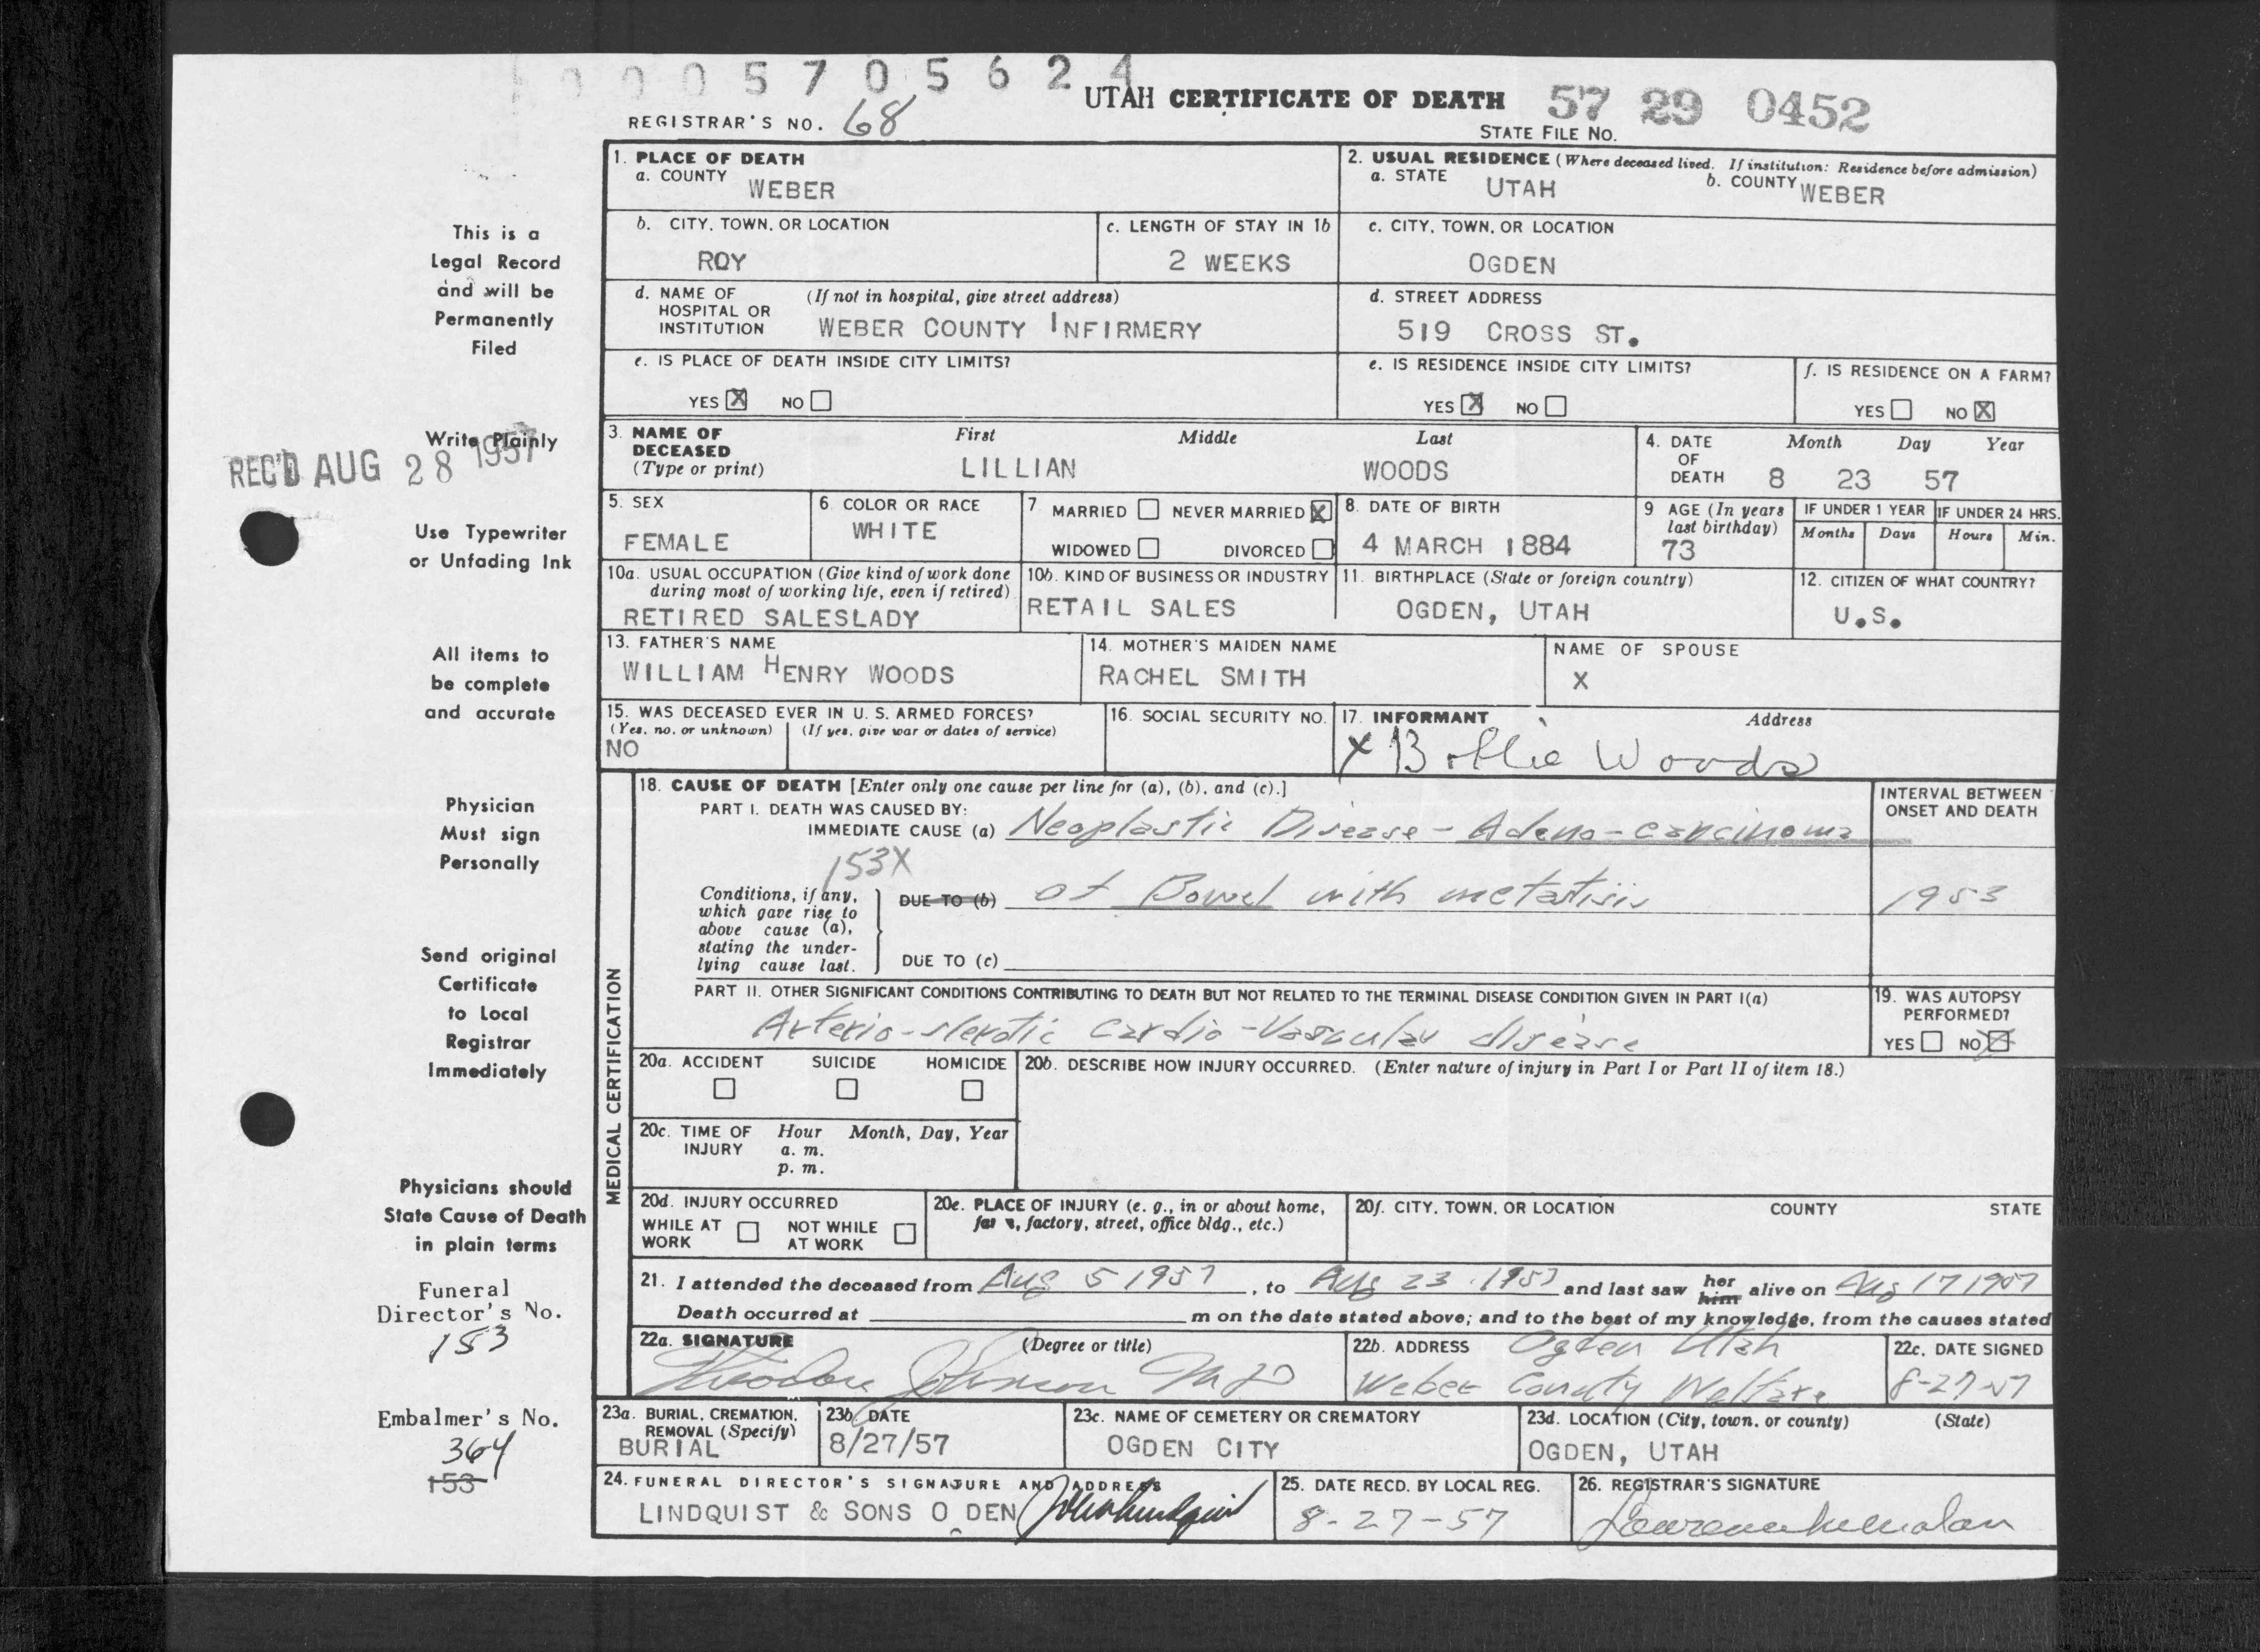 0 0 0 5 7 0 5 6 2 4
UTAH CERTIFICATE OF DEATH 57 29 0452
REGISTRAR'S NO. 68 STATE FILE NO.
1. PLACE OF DEATH
a. COUNTY WEBER
2. USUAL RESIDENCE (Where deceased lived. If institution: Residence before admission)
a. STATE UTAH b. COUNTY WEBER
b. CITY, TOWN, OR LOCATION ROY
c. LENGTH OF STAY IN 1b 2 WEEKS
c. CITY, TOWN, OR LOCATION OGDEN
d. NAME OF HOSPITAL OR INSTITUTION (If not in hospital, give street address)
WEBER COUNTY INFIRMERY
d. STREET ADDRESS
519 CROSS ST.
e. IS PLACE OF DEATH INSIDE CITY LIMITS?
YES X NO
e. IS RESIDENCE INSIDE CITY LIMITS?
YES X NO
f. IS RESIDENCE ON A FARM?
YES NO X
3. NAME OF DECEASED (Type or print)
First Middle Last
LILLIAN WOODS
4. DATE OF DEATH Month Day Year
8 23 57
5. SEX
FEMALE
6 COLOR OR RACE
WHITE
7 MARRIED NEVER MARRIED X
WIDOWED DIVORCED
8. DATE OF BIRTH
4 MARCH 1884
9 AGE (In years last birthday)
73
IF UNDER 1 YEAR IF UNDER 24 HRS.
Months Days Hours Min.
10a. USUAL OCCUPATION (Give kind of work done during most of working life, even if retired)
RETIRED SALESLADY
10b. KIND OF BUSINESS OR INDUSTRY
RETAIL SALES
11. BIRTHPLACE (State or foreign country)
OGDEN, UTAH
12. CITIZEN OF WHAT COUNTRY?
U.S.
13. FATHER'S NAME
WILLIAM HENRY WOODS
14. MOTHER'S MAIDEN NAME
RACHEL SMITH
NAME OF SPOUSE
X
15. WAS DECEASED EVER IN U. S. ARMED FORCES?
(Yes, no, or unknown) (If yes, give war or dates of service)
NO
16. SOCIAL SECURITY NO.
17. INFORMANT Address
X Woods
MEDICAL CERTIFICATION
18. CAUSE OF DEATH [Enter only one cause per line for (a), (b), and (c).]
INTERVAL BETWEEN ONSET AND DEATH
PART I. DEATH WAS CAUSED BY:
IMMEDIATE CAUSE (a) Neoplastic Disease - Adeno-carcinoma
153X
Conditions, if any, which gave rise to above cause (a), stating the underlying cause last.
DUE TO (b) of Bowel with metastisis 1953
DUE TO (c)
PART II. OTHER SIGNIFICANT CONDITIONS CONTRIBUTING TO DEATH BUT NOT RELATED TO THE TERMINAL DISEASE CONDITION GIVEN IN PART I(a)
Arterio-slerotic Cardio-Vascular disease
19. WAS AUTOPSY PERFORMED?
YES NO X
20a. ACCIDENT SUICIDE HOMICIDE
20b. DESCRIBE HOW INJURY OCCURRED. (Enter nature of injury in Part I or Part II of item 18.)
20c. TIME OF INJURY Hour Month, Day, Year
a. m.
p. m.
20d. INJURY OCCURRED
WHILE AT WORK NOT WHILE AT WORK
20e. PLACE OF INJURY (e. g., in or about home, factory, street, office bldg., etc.)
20f. CITY, TOWN, OR LOCATION COUNTY STATE
21. I attended the deceased from Aug 5 1957, to Aug 23 1957 and last saw her him alive on Aug 17 1957
Death occurred at m on the date stated above; and to the best of my knowledge, from the causes stated
22a. SIGNATURE (Degree or title)
Theodore Johnson MD
22b. ADDRESS Ogden Utah
Weber County Welfare
22c. DATE SIGNED
8-27-57
23a. BURIAL, CREMATION, REMOVAL (Specify)
BURIAL
23b. DATE
8/27/57
23c. NAME OF CEMETERY OR CREMATORY
OGDEN CITY
23d. LOCATION (City, town, or county) (State)
OGDEN, UTAH
24. FUNERAL DIRECTOR'S SIGNATURE AND ADDRESS
LINDQUIST & SONS O DEN
25. DATE RECD. BY LOCAL REG.
8-27-57
26. REGISTRAR'S SIGNATURE
This is a
Legal Record
and will be
Permanently
Filed
Write Plainly
REC'D AUG 28 1957
Use Typewriter
or Unfading Ink
All items to
be complete
and accurate
Physician
Must sign
Personally
Send original
Certificate
to Local
Registrar
Immediately
Physicians should
State Cause of Death
in plain terms
Funeral
Director's No.
153
Embalmer's No.
364
153